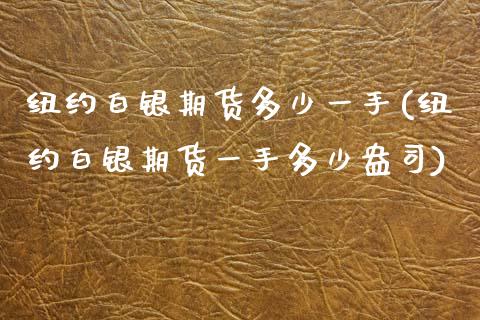 纽约白银期货多少一手(纽
约白银期货一手多少盎司)